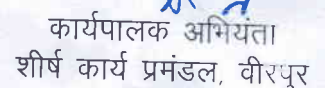 कार्यपालक अभियंता
शीर्ष कार्य प्रमंडल, वीरपुर